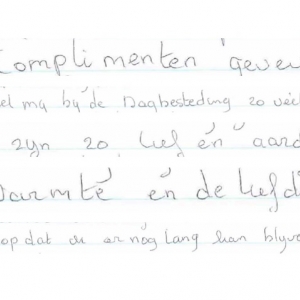 Complimenten geven
el my by de Dagbesteding zo
zyn zo lief en aard
warmte en de liefd
op dat du er nog lang kan blyve